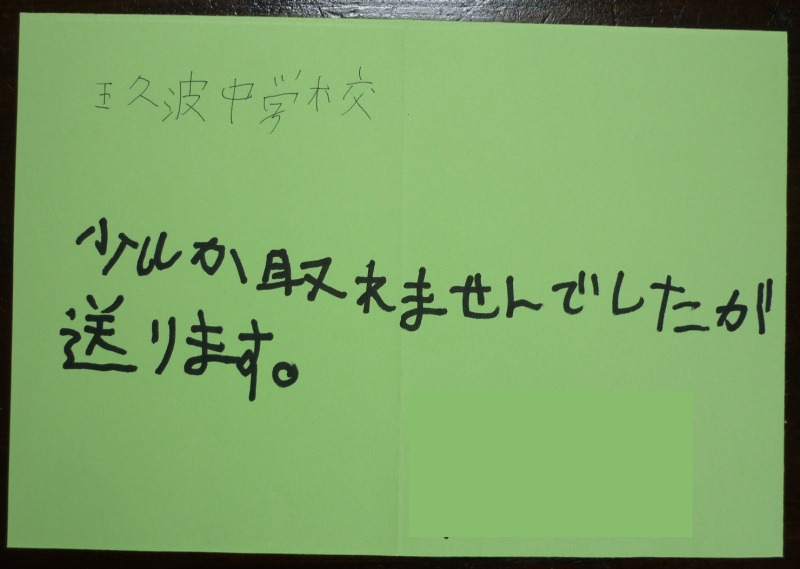 玉久波中学校
少しか取れませんでしたが
送ります。